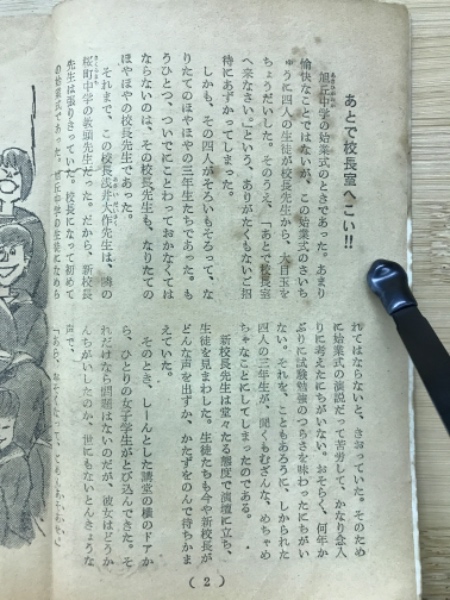 あとで校長室へこい!!
旭丘中学の始業式のときであった。あまり
愉快なことではないが、この始業式のさいち
ゅうに四人の生徒が校長先生から、大目玉を
ちょうだいした。そのうえ、「あとで校長室
へ来なさい。」という、ありがたくもないご招
待にあずかってしまった。
しかも、その四人がそろいもそろって、な
りたてのほやほやの三年生たちであった。も
うひとつ、ついでにことわっておかなくては
ならないのは、その校長先生も、なりたての
ほやほやの校長先生であった。
それまで、この校長浅井大作先生は、隣の
桜町中学の教頭先生だった。だから、新校長
先生は張りきっていた。校長になって初めて
の始業式であった。旭丘中学の生徒になめら
れてはならないと、きおっていた。そのため
に始業式の演説だって苦労して、かなり念入
りに考えたにちがいない。おそらく、何年か
ぶりに試験勉強のつらさを味わったにちがい
ない。それを、こともあろうに、しかられた
四人の三年生が、聞くもむざんな、めちゃめ
ちゃなことにしてしまったのである。
新校長先生は堂々たる態度で演壇に立ち、
生徒を見まわした。生徒たちも今や新校長が
どんな声を出すか、かたずをのんで待ちかま
えていた。
そのとき、しーんとした講堂の横のドアか
ら、ひとりの女子学生がとび込んできた。そ
れだけなら問題はないのだが、彼女はどうか
んちがいしたのか、世にもないとんきょうな
声で、
「あら、おそくなって、
( 2 )